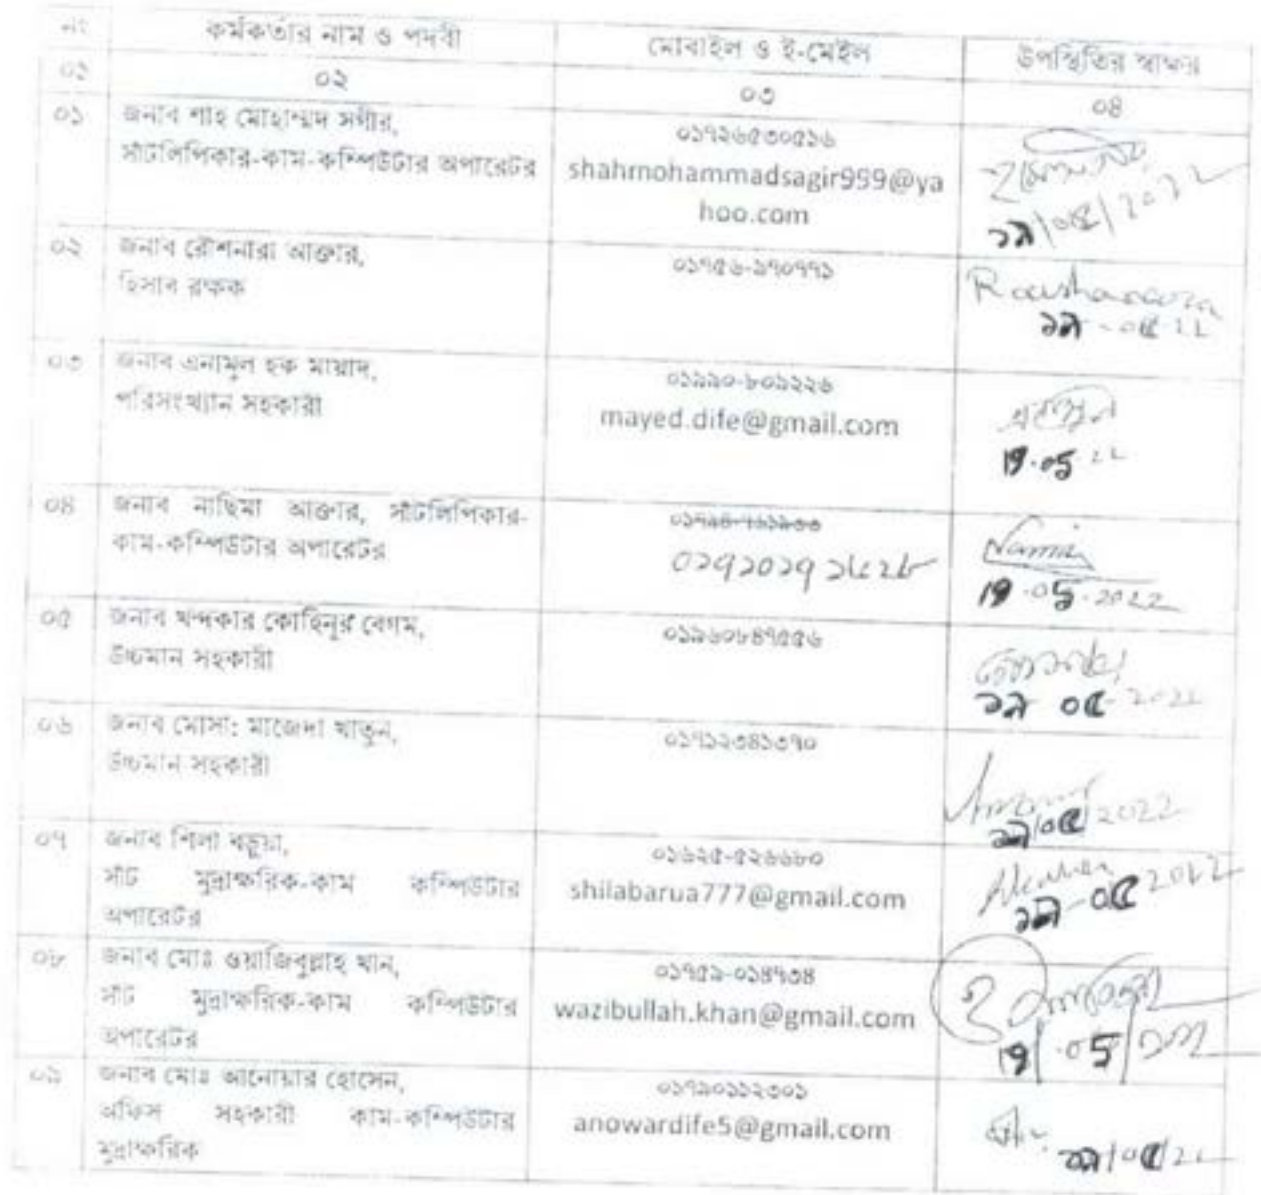 নং কর্মকর্তার নাম ও পদবী মোবাইল ও ই-মেইল উপস্থিতির স্বাক্ষর
০১ ০২ ০৩ ০৪
০১ জনাব শাহ মোহাম্মদ সগীর,
সাঁটলিপিকার-কাম-কম্পিউটার অপারেটর
০১৭২৬৫৩০৫১৬
shahmohammadsagir999@ya
hoo.com
১৯/০৫/২০২২
০২ জনাব রৌশনারা আক্তার,
হিসাব রক্ষক
০১৭৫৬-১৭০৭৭১
১৯-০৫-২২
০৩ জনাব এনামুল হক মায়াদ,
পরিসংখ্যান সহকারী
০১৯৯০-৮০৯২২৬
mayed.dife@gmail.com
19.05.22
০৪ জনাব নাছিমা আক্তার, সাঁটলিপিকার-
কাম-কম্পিউটার অপারেটর
19.05.2022
০৫ জনাব খন্দকার কোহিনূর বেগম,
উচ্চমান সহকারী
০১৯৬০৮৪৭৫৫৬
১৯ ০৫ 2022
০৬ জনাব মোসা: মাজেদা খাতুন,
উচ্চমান সহকারী
০১৭১২৩৪১৩৭০
১৯/০৫/2022
০৭ জনাব শিলা বড়ুয়া,
সাঁট মুদ্রাক্ষরিক-কাম কম্পিউটার
অপারেটর
০১৬২৫-৫২৬৬৮০
shilabarua777@gmail.com
১৯-০৫ 2022
০৮ জনাব মোঃ ওয়াজিবুল্লাহ খান,
সাঁট মুদ্রাক্ষরিক-কাম কম্পিউটার
অপারেটর
০১৭৫৯-০১৪৭৩৪
wazibullah.khan@gmail.com
০৯ জনাব মোঃ আনোয়ার হোসেন,
অফিস সহকারী কাম-কম্পিউটার
মুদ্রাক্ষরিক
০১৭৯০১১২৩০১
anowardife5@gmail.com
১৯/০৫/22